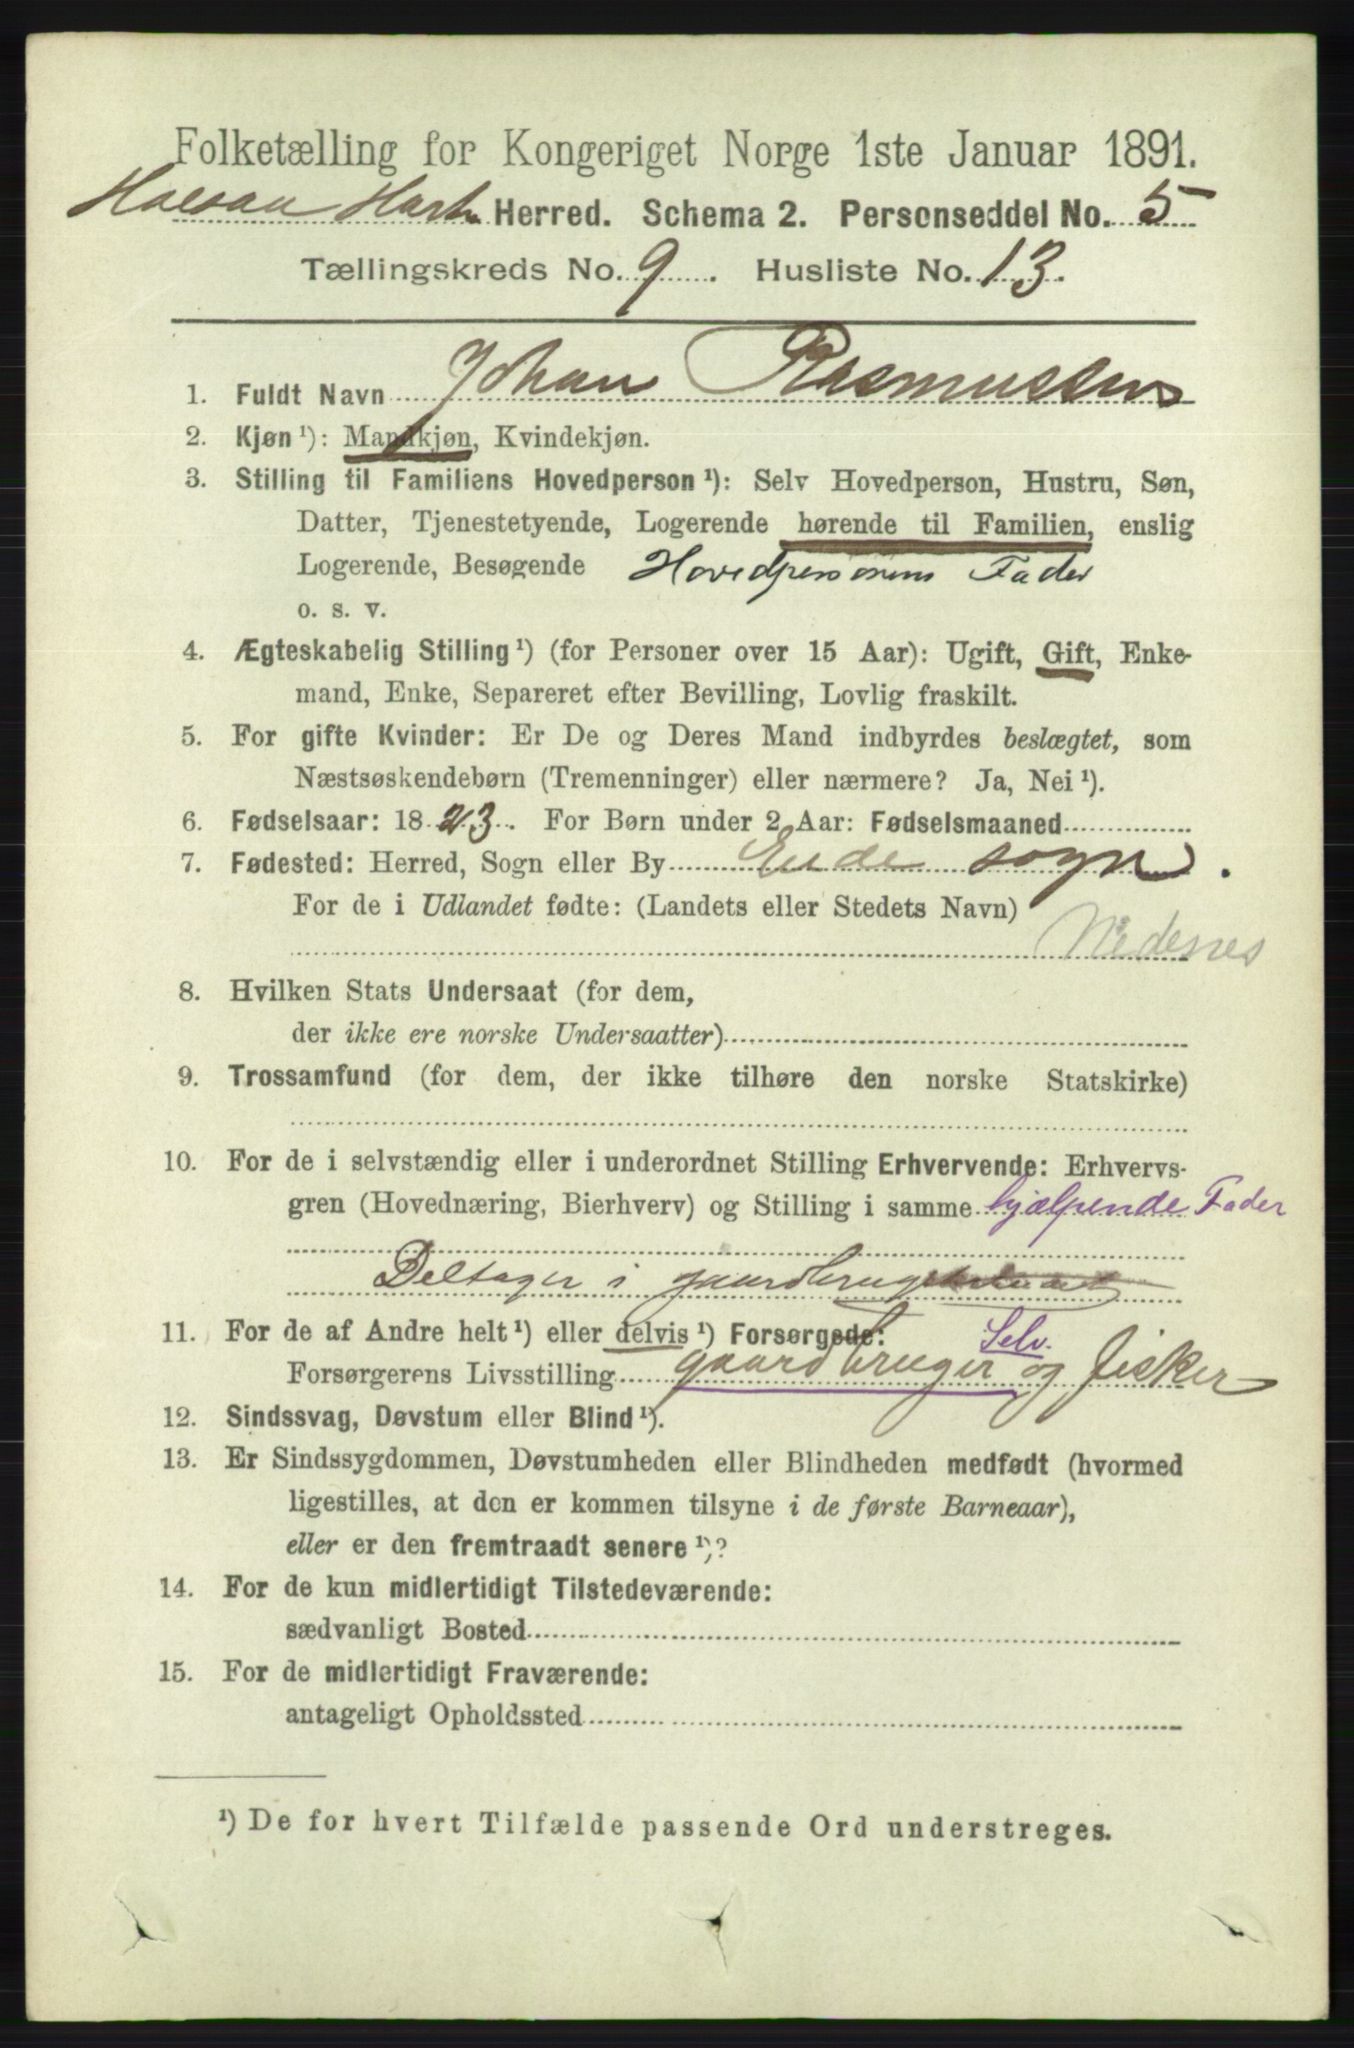 Folketælling for Kongeriget Norge 1ste Januar 1891.
Halsaa Hark. Herred. Schema 2. Personseddel No. 5
Tællingskreds No. 9. Husliste No. 13.
1. Fuldt Navn Johan Rasmussen
2. Kjøn ¹): Mandkjøn, Kvindekjøn.
3. Stilling til Familiens Hovedperson ¹): Selv Hovedperson, Hustru, Søn,
Datter, Tjenestetyende, Logerende hørende til Familien, enslig
Logerende, Besøgende Hovedpersonens Fader
o. s. v.
4. Ægteskabelig Stilling ¹) (for Personer over 15 Aar): Ugift, Gift, Enke-
mand, Enke, Separeret efter Bevilling, Lovlig fraskilt.
5. For gifte Kvinder: Er De og Deres Mand indbyrdes beslægtet, som
Næstsøskendebørn (Tremenninger) eller nærmere? Ja, Nei ¹).
6. Fødselsaar: 1823. For Børn under 2 Aar: Fødselsmaaned
7. Fødested: Herred, Sogn eller By Eide sogn.
For de i Udlandet fødte: (Landets eller Stedets Navn)
Nedesnes
8. Hvilken Stats Undersaat (for dem,
der ikke ere norske Undersaatter)
9. Trossamfund (for dem, der ikke tilhøre den norske Statskirke)
10. For de i selvstændig eller i underordnet Stilling Erhvervende: Erhvervs-
gren (Hovednæring, Bierhverv) og Stilling i samme hjælpende Fader
Deltager i gaardbruget
11. For de af Andre helt ¹) eller delvis ¹) Forsørgede: Selv.
Forsørgerens Livsstilling gaardbruger og fisker
12. Sindssvag, Døvstum eller Blind ¹).
13. Er Sindssygdommen, Døvstumheden eller Blindheden medfødt (hvormed
ligestilles, at den er kommen tilsyne i de første Barneaar),
eller er den fremtraadt senere ¹)?
14. For de kun midlertidigt Tilstedeværende:
sædvanligt Bosted
15. For de midlertidigt Fraværende:
antageligt Opholdssted
¹) De for hvert Tilfælde passende Ord understreges.